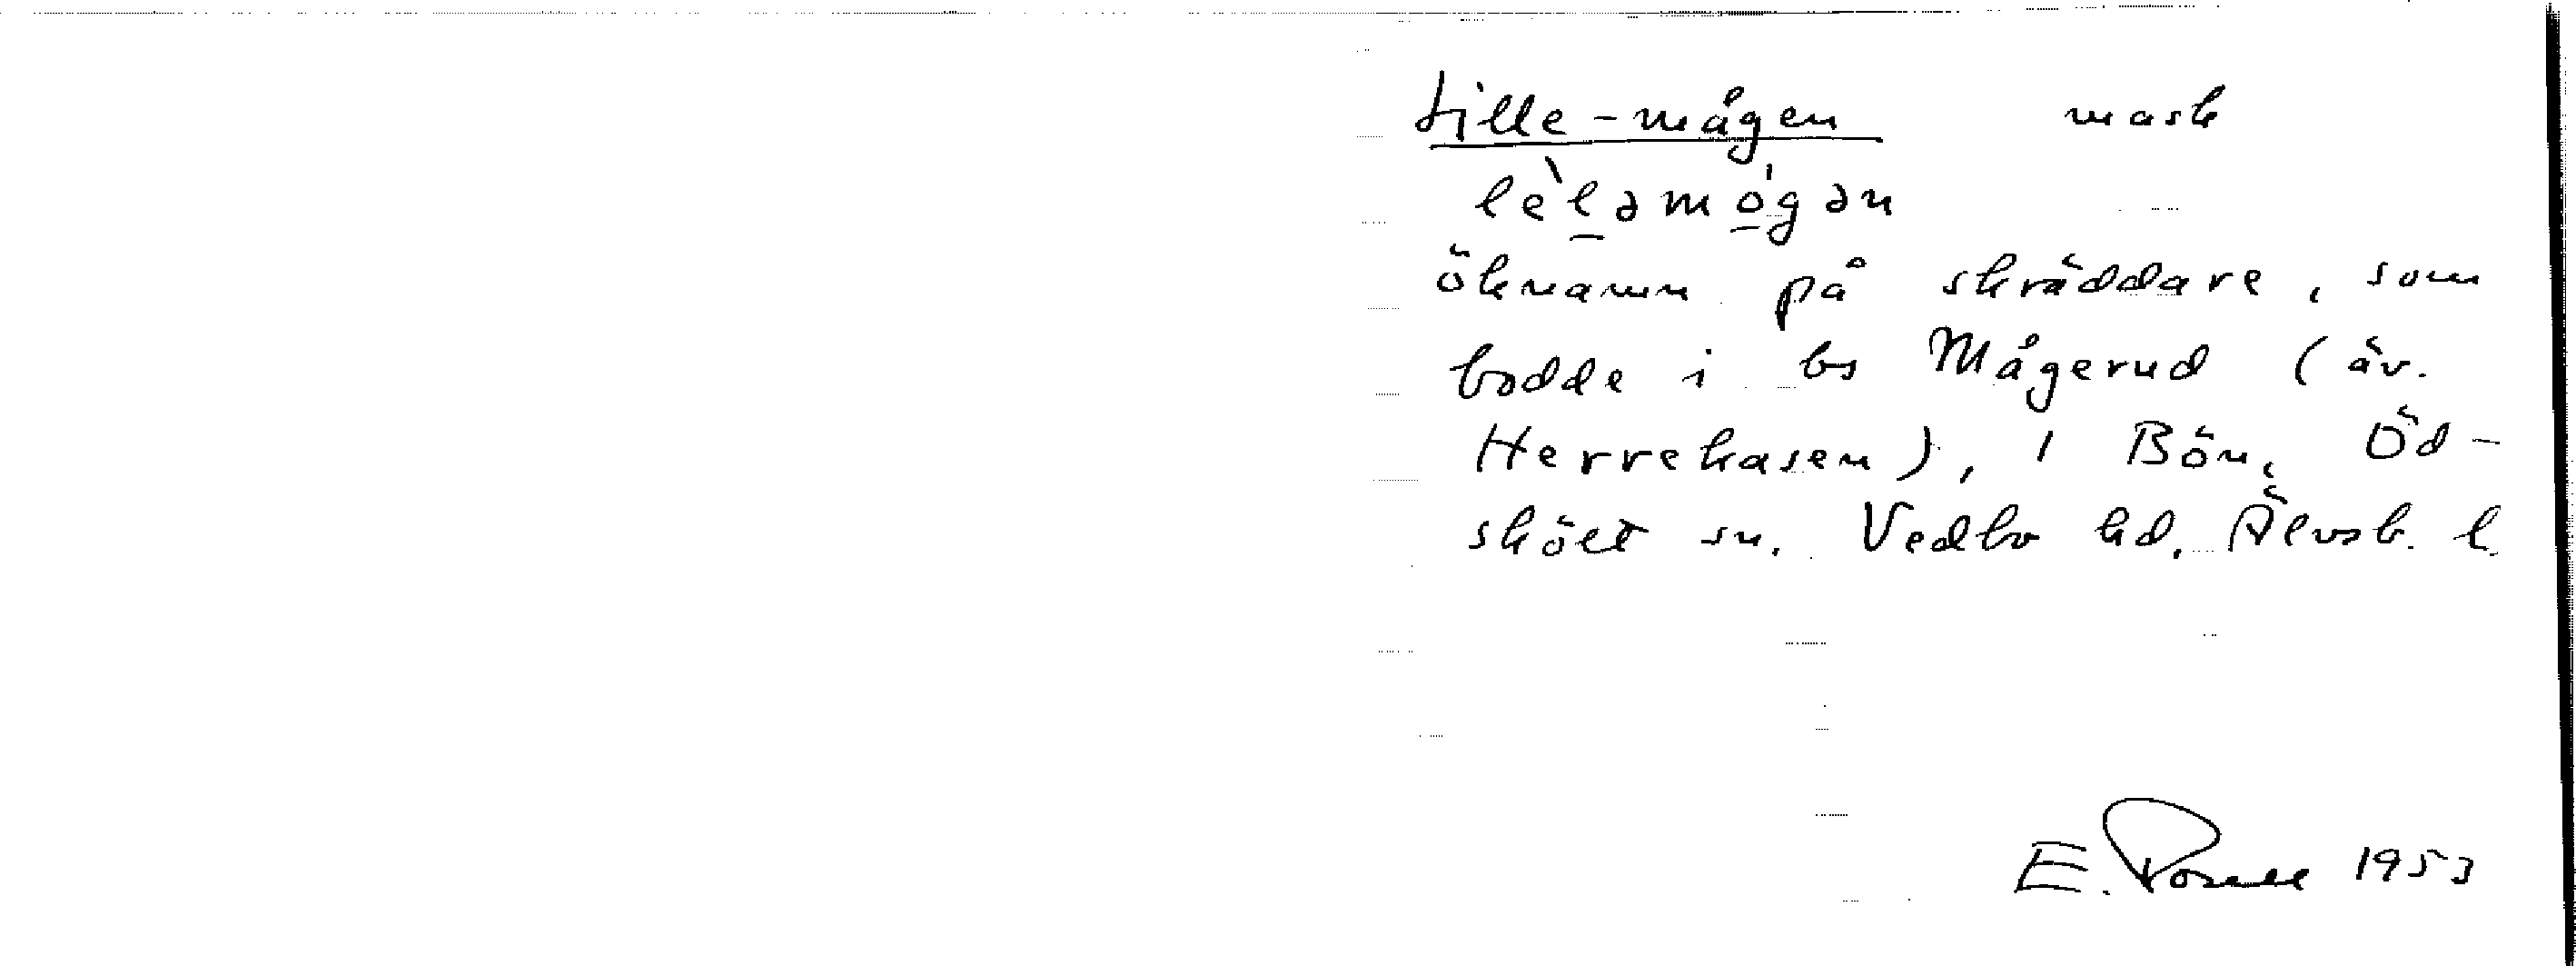 Lille-mågen mask
lèləmógən
öknamn på skräddare, som
bodde i bs Mågerud (äv.
Herrekasen), i Bön, Öd-
skölt sn. Vedbo hd. Älvsb. l.
E. 1953